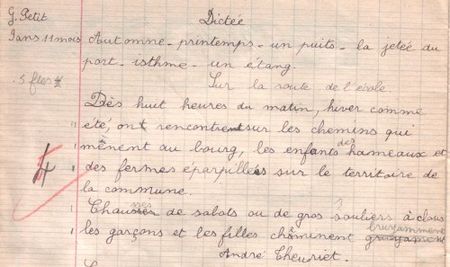 G. Petit
Dictée
9 ans 11 mois Automne - printemps - un puits - la jetée du
port - isthme - un étang.
5 ftes Sur la route de l'école
Dès huit heures du matin, hiver comme
été, ont rencontrent sur les chemins qui
mènent au bourg, les enfants des hameaux et
4 des fermes éparpillées sur le territoire de
la commune.
Chaussés de sabots ou de gros souliers à clous
bruyamment
les garçons et les filles cheminent
André Theuriet.